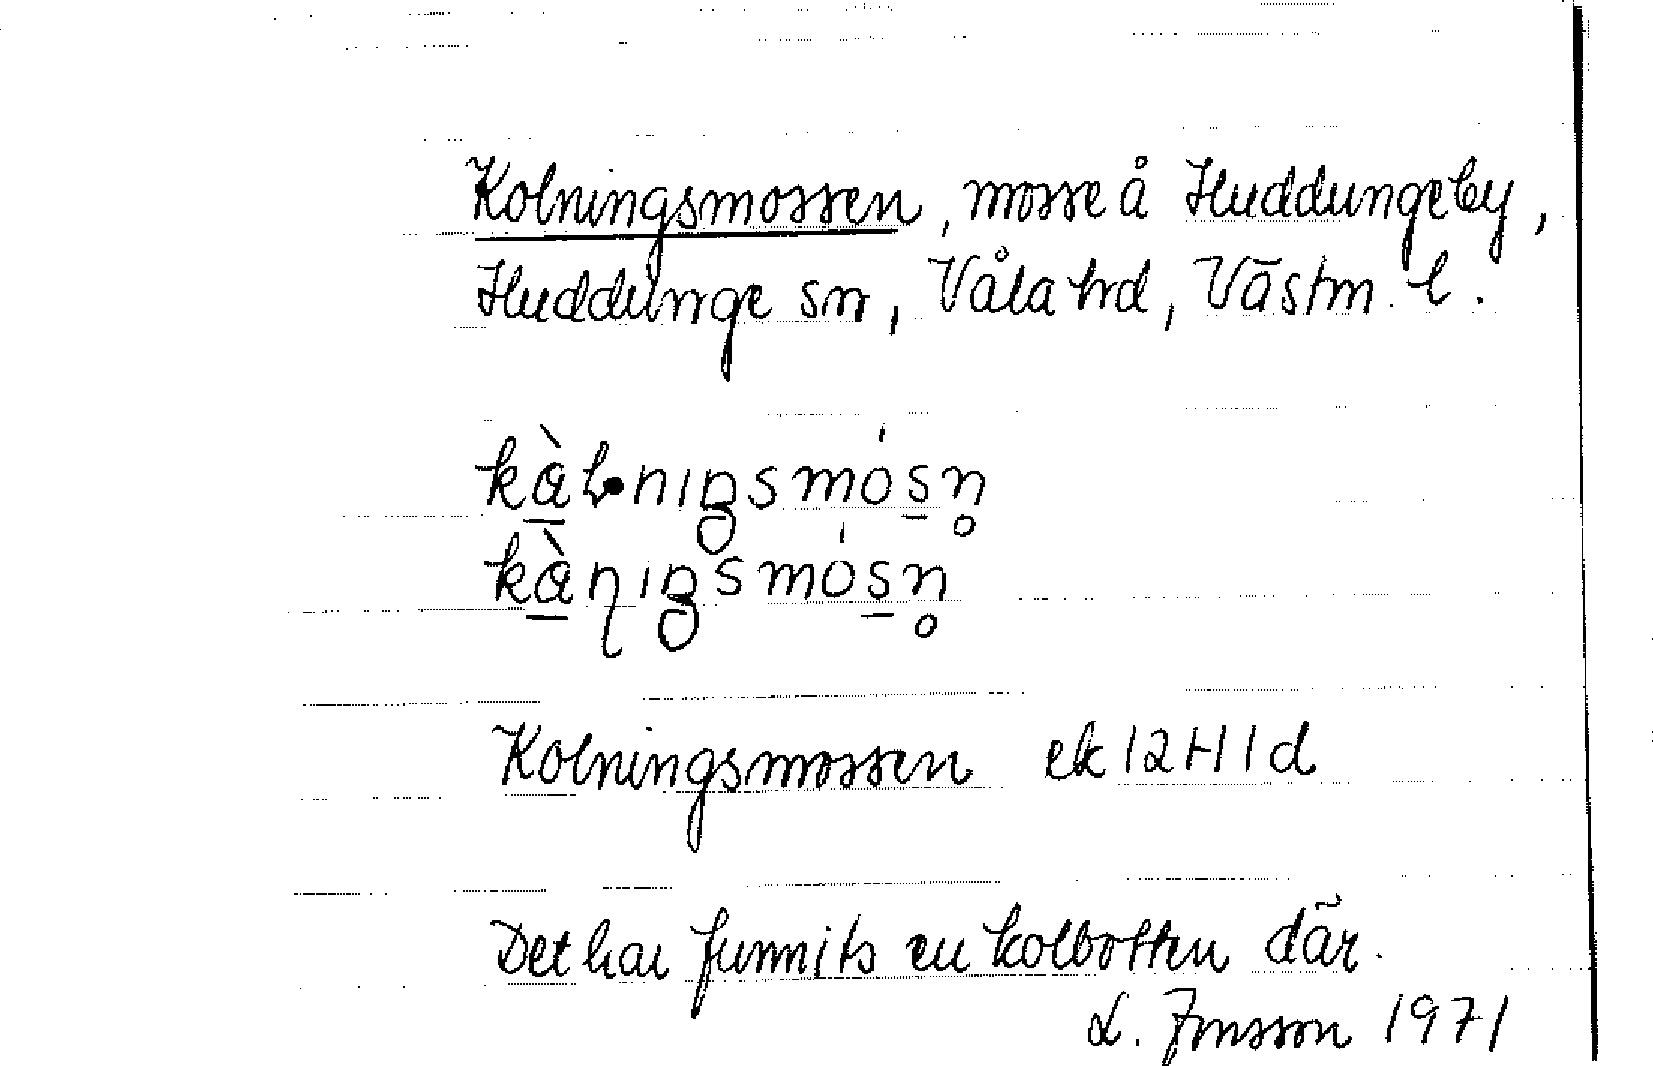 Kolningsmossen, mosse å Huddungeby,
Huddunge sn, Våla hrd, Västm. l.
Kolningsmossen ek 12H1d
Det har funnits en kolbotten där.
L. Jonsson 1971